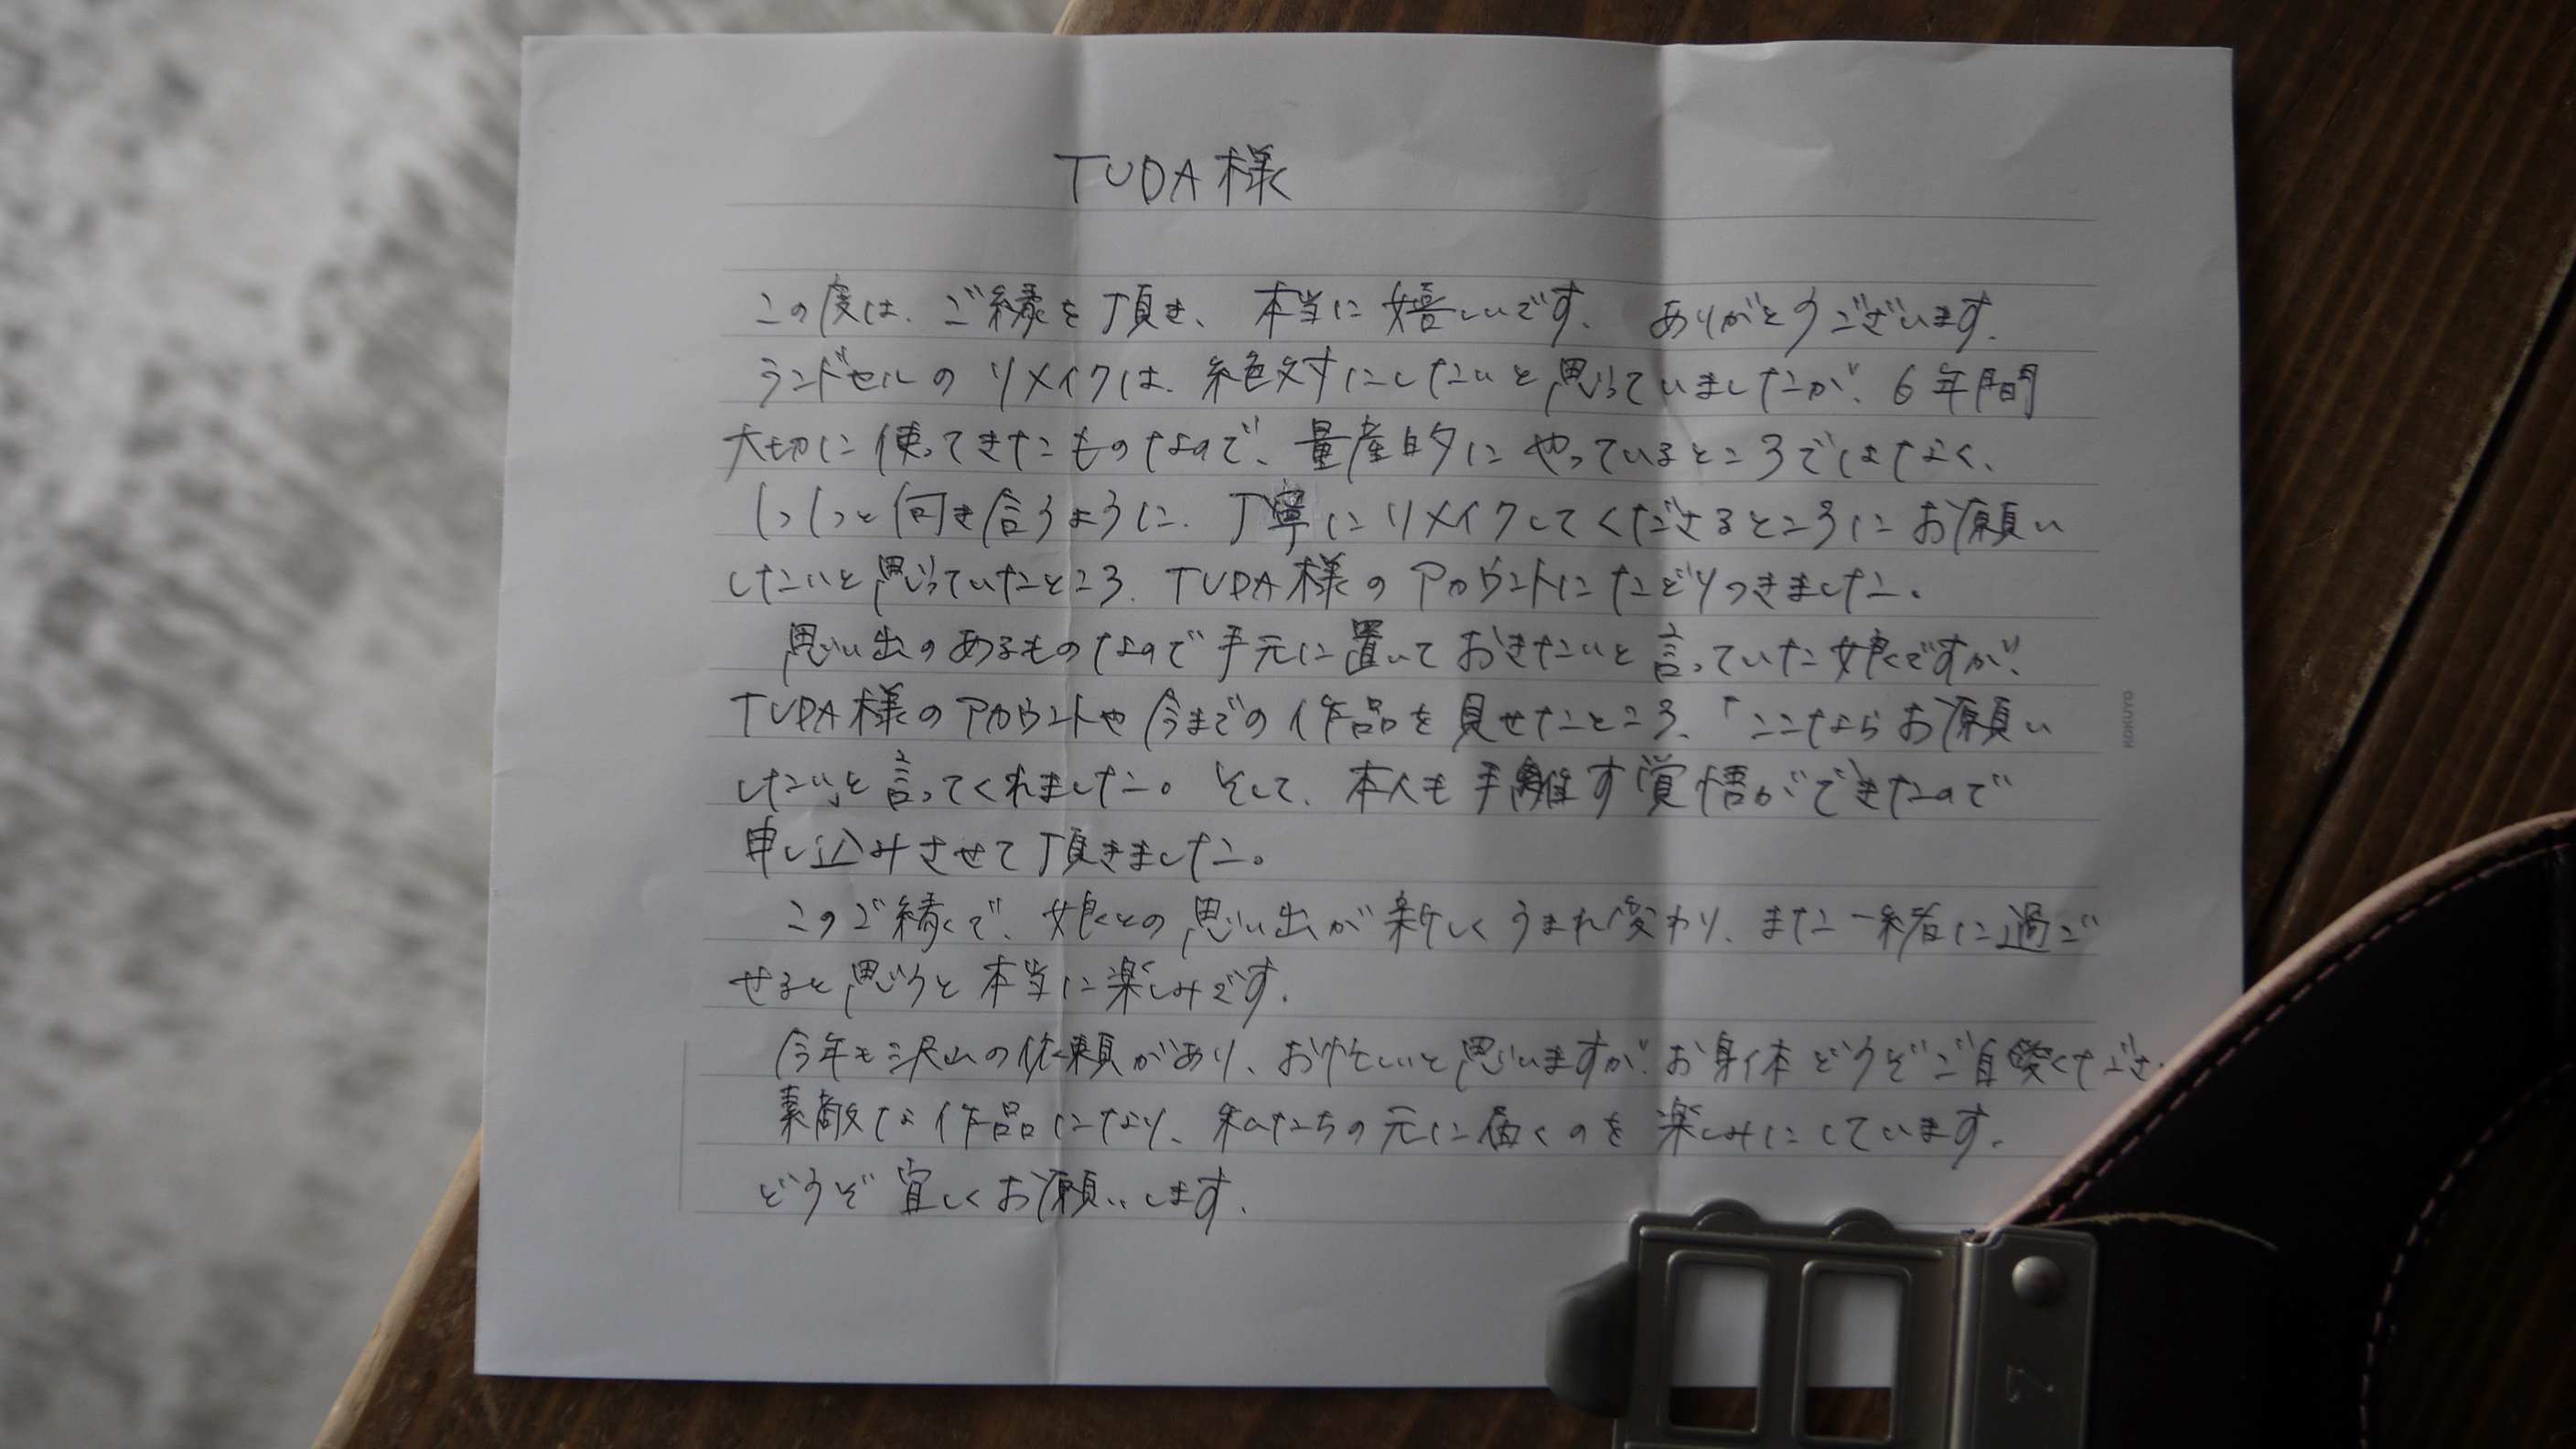 TUDA様
この度は、ご縁を頂き、本当に嬉しいです。ありがとうございます。
ランドセルのリメイクは、絶対にしたいと思っていましたが、6年間
大切に使ってきたものなので、量産的にやっているところではなく、
1つ1つと向き合うように、丁寧にリメイクしてくださるところにお願い
したいと思っていたところ、TUDA様のアカウントにたどりつきました。
思い出のあるものなので手元に置いておきたいと言っていた娘ですが、
TUDA様のアカウントや今までの作品を見せたところ、「ここならお願い
したい」と言ってくれました。そして、本人も手離す覚悟ができたので
申し込みさせて頂きました。
このご縁で、娘との思い出が新しくうまれ変わり、また一緒に過ご
せると思うと本当に楽しみです。
今年も沢山の依頼があり、お忙しいと思いますが、お身体どうぞご自愛くださ
素敵な作品になり、私たちの元に届くのを楽しみにしています。
どうぞ宜しくお願いします。
KOKUYO